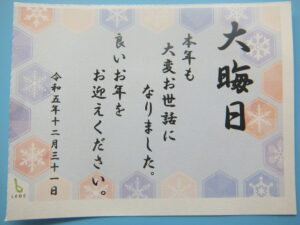 大晦日
本年も
大変お世話に
なりました。
良いお年を
お迎えください。
令和五年十二月三十一日